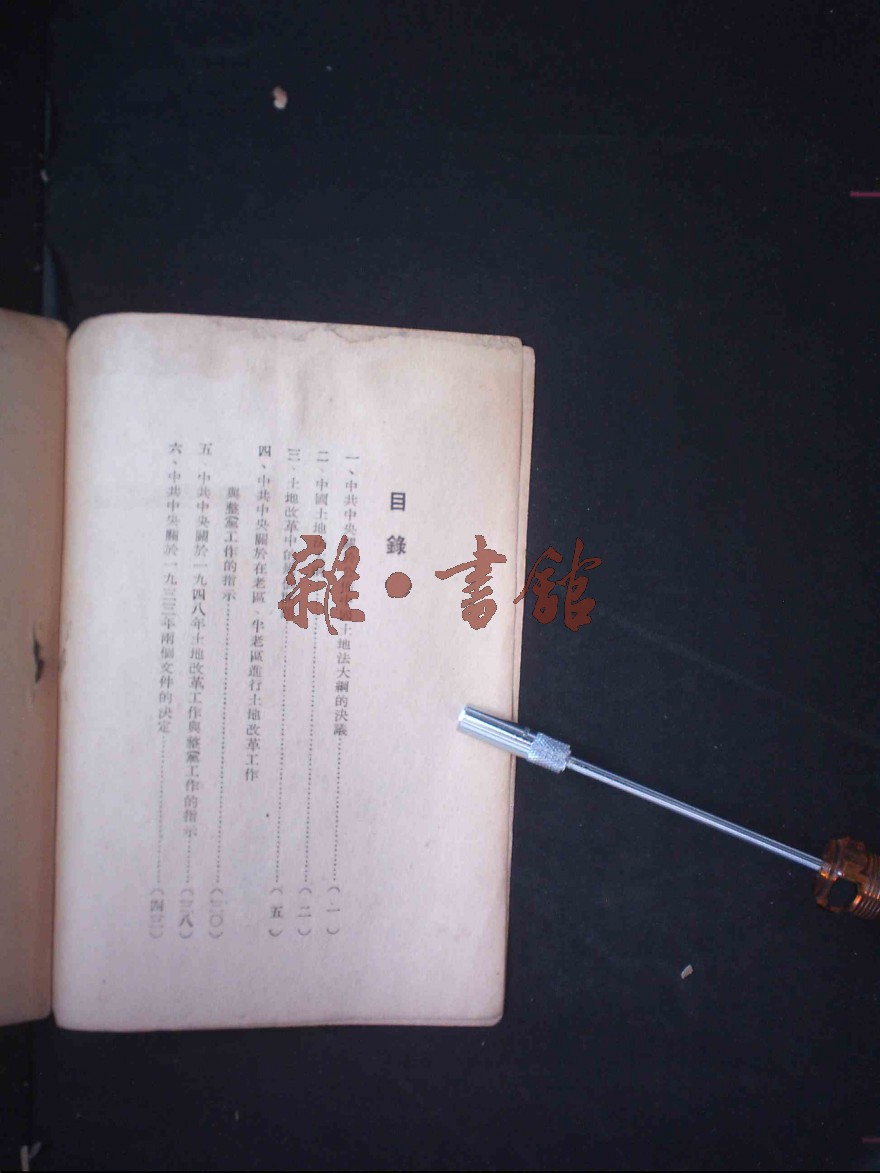 目錄
一、中共中央 土地法大綱的決議……(一)
二、中國土地法……(二)
三、土地改革中的……(五)
四、中共中央關於在老區、半老區進行土地改革工作
與整黨工作的指示……(三〇)
五、中共中央關於一九四八年土地改革工作與整黨工作的指示……(三八)
六、中共中央關於一九三三年兩個文件的決定……(四三)
雜·書館